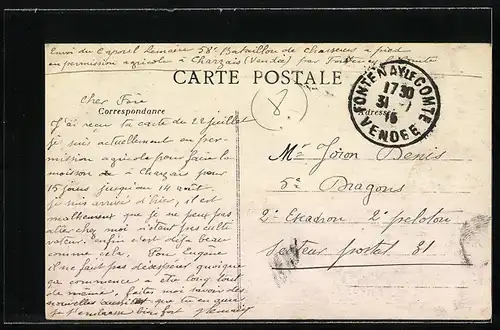 Envoi du Caporal Lemaire 58e Bataillon de Chasseurs à pied
en permission agricole à Charzais (Vendée) par Fontenay le Comte
CARTE POSTALE
Correspondance
Adresse
FONTENAY-LE-COMTE
17 30
31 -7
15
VENDEE
8
Cher
J'ai reçu ta carte du 22 juillet
je suis actuellement en per-
mission agricole pour faire la
moisson à Charzais pour
15 jours jusqu'au 14 août.
je suis arrivé d'hier, il est
malheureux que je ne peux pas
aller chez moi n'étant pas culti-
vateur. enfin c'est déjà beau
comme cela. Eugène
il ne faut pas désespérer quoique
ça commence à être long tout
de même, faites moi savoir des
nouvelles aussitôt que tu en auras
je t'embrasse bien fort
Mr Joron Denis
5e Dragons
2e Escadron 2e peloton
Secteur postal 81